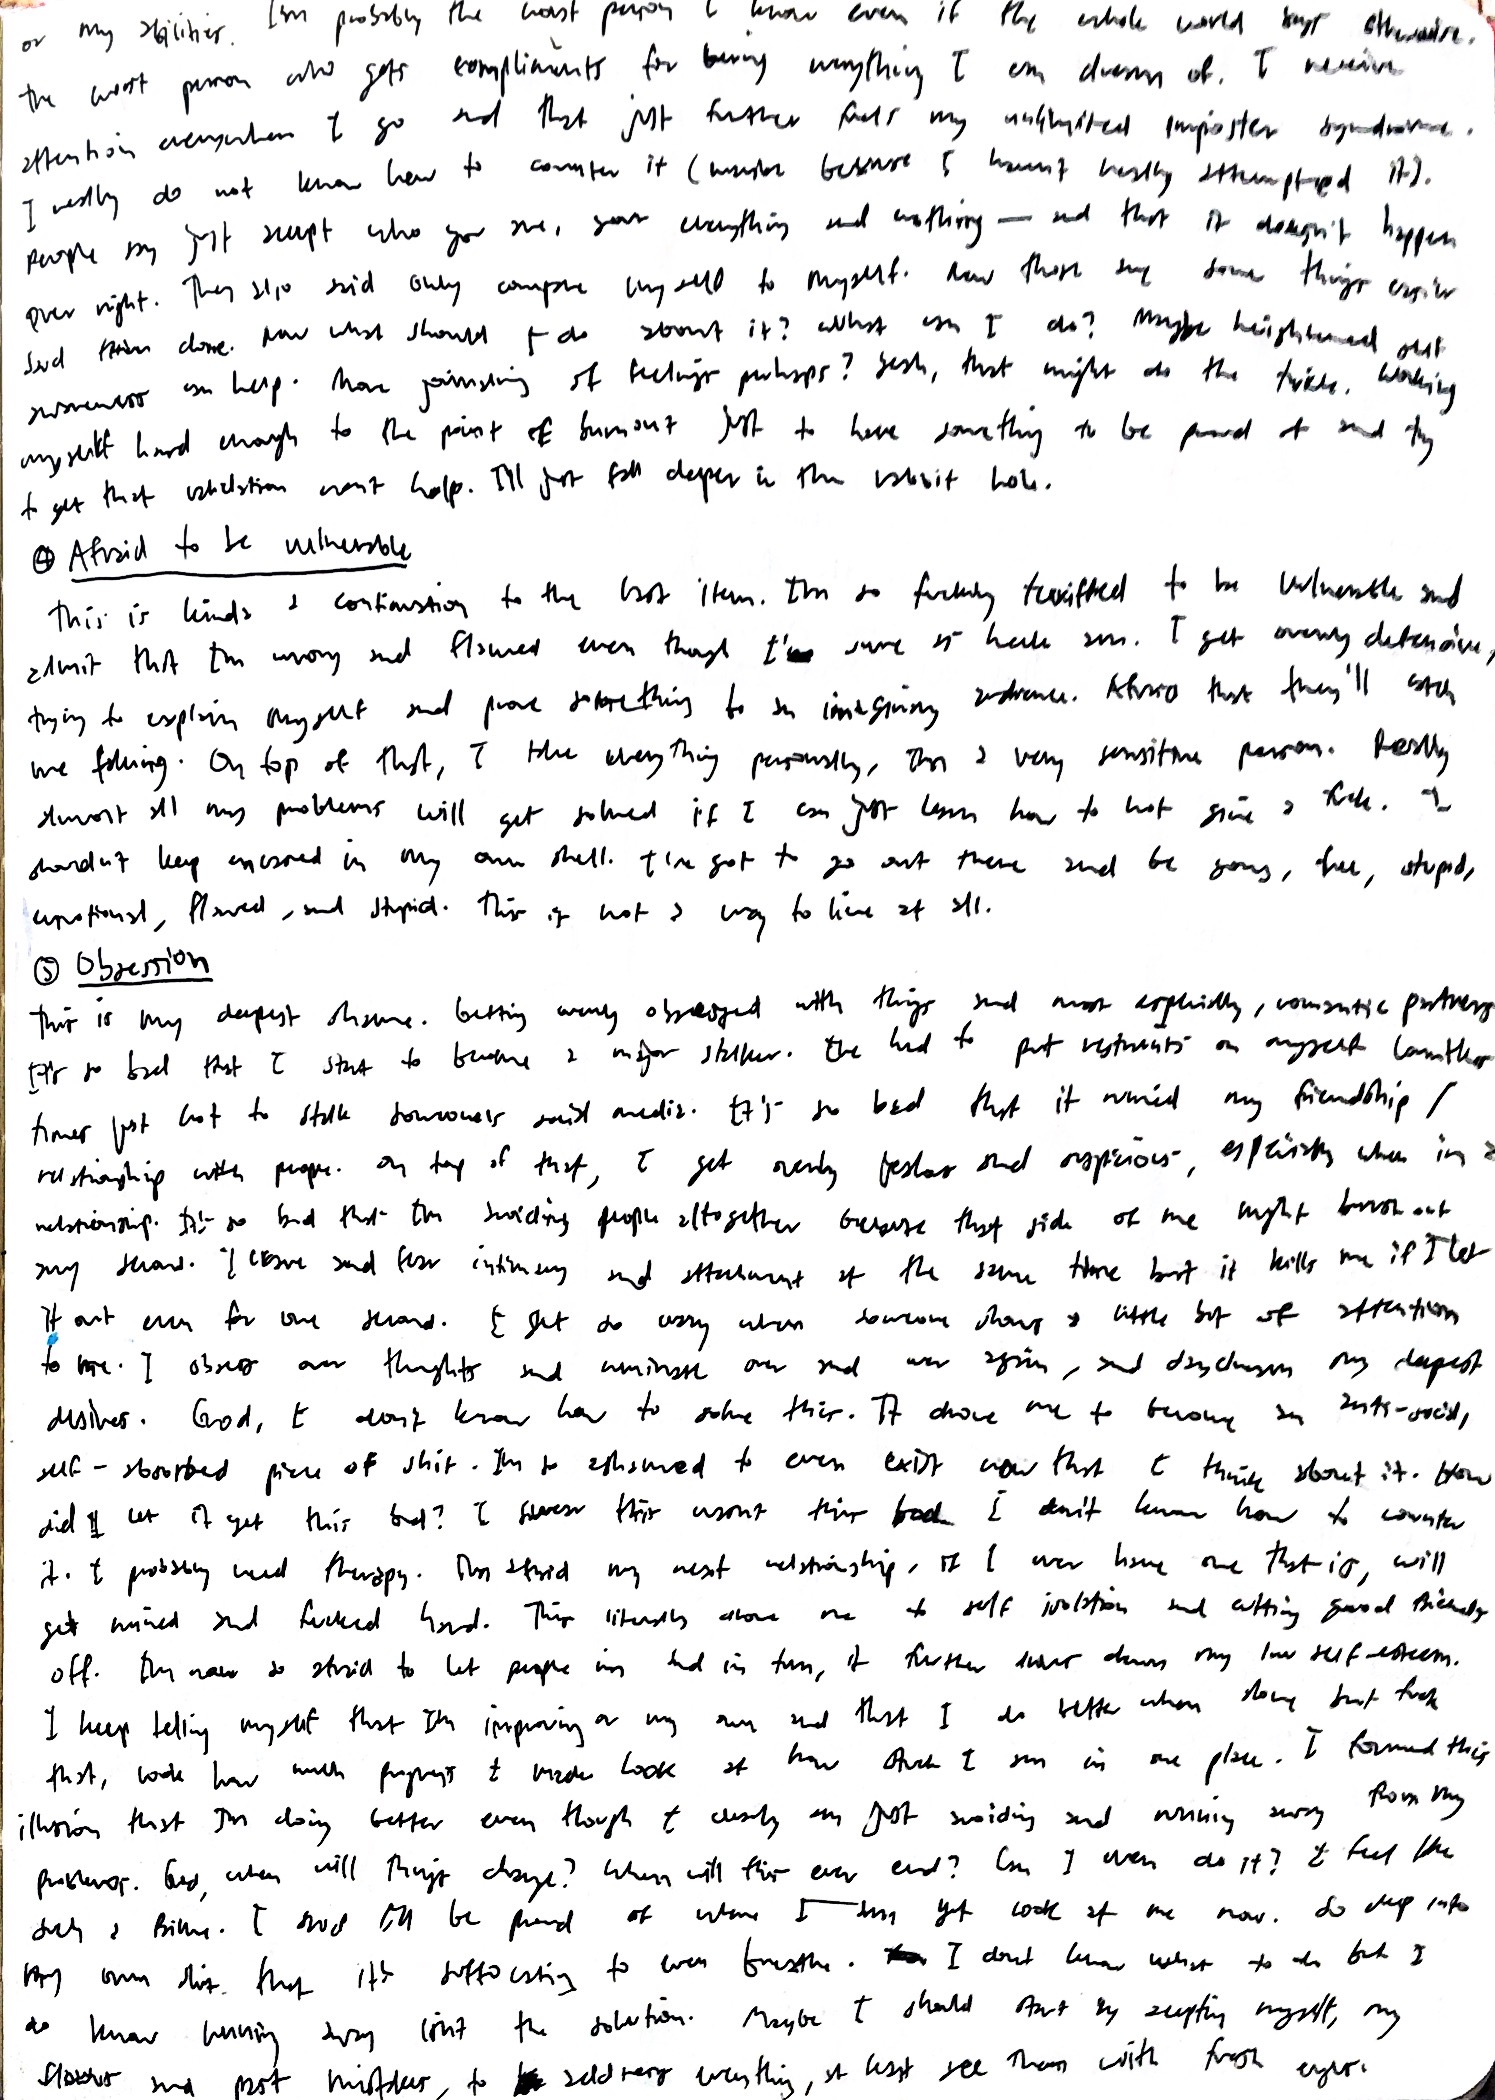 or my abilities. I'm probably the worst person I know even if the whole world says otherwise.
the worst person who gets compliments for being everything I can dream of. I receive
attention everywhere I go and that just further fuels my unlimited imposter syndrome.
I really do not know how to counter it (maybe because I haven't really attempted it).
people say just accept who you are, your everything and nothing — and that it doesn't happen
over night. They also said only compare myself to myself. Now those are some things easier
said than done. Now what should I do about it? What can I do? Maybe heightened self
awareness can help. More journaling of feelings perhaps? Yeah, that might do the trick. Working
myself hard enough to the point of burnout just to have something to be proud of and try
to get that validation won't help. I'll just fall deeper in the rabbit hole.
④ Afraid to be vulnerable
This is kinda a continuation to the last item. I'm so fucking terrified to be vulnerable and
admit that I'm wrong and flawed even though I sure as heck am. I get overly defensive,
trying to explain myself and prove something to an imaginary audience. Afraid that they'll catch
me faking. On top of that, I take everything personally, I'm a very sensitive person. Really
almost all my problems will get solved if I can just learn how to not give a fuck. I
shouldn't keep encased in my own shell. I've got to go out there and be young, free, stupid,
emotional, flawed, and stupid. This is not a way to live at all.
⑤ Obsession
This is my deepest shame. Getting overly obsessed with things and most especially, romantic partners
It's so bad that I start to become a major stalker. I've had to put restraints on myself
times just not to stalk someone's social media. It's so bad that it ruined my friendship /
relationship with people. On top of that, I get overly jealous and suspicious, especially when in a
relationship. It's so bad that I'm avoiding people altogether because that side of me might burst out
any second. I crave and fear intimacy and attachment at the same time but it kills me if I let
it out even for one second. I get so crazy when someone shows a little bit of attention
to me. I obsess over thoughts and ruminate over and over again, and daydream my deepest
desires. God, I don't know how to solve this. It drove me to become an anti-social,
self-absorbed piece of shit. I'm so ashamed to even exist now that I think about it. How
did I let it get this bad? I swear this wasn't this bad I don't know how to counter
it. I probably need therapy. I'm afraid my next relationship, if I ever have one that is, will
get ruined and fucked hard. This literally drove me to self isolation and cutting good friends
off. I'm now so afraid to let people in and in turn, it further down my low self-esteem.
I keep telling myself that I'm improving on my own and that I do better when alone but fuck
that, look how much progress I made look at how stuck I am in one place. I formed this
illusion that I'm doing better even though I clearly am just avoiding and running away from my
problems. God, when will things change? When will this ever end? Can I even do it? I feel like
such a failure. I said I'll be proud of where I am yet look at me now. So deep into
my own shit that it's suffocating to even breathe. I don't know what to do but I
do know running away isn't the solution. Maybe I should start by accepting myself, my
flaws and past mistakes, to address everything, at least see them with fresh eyes.